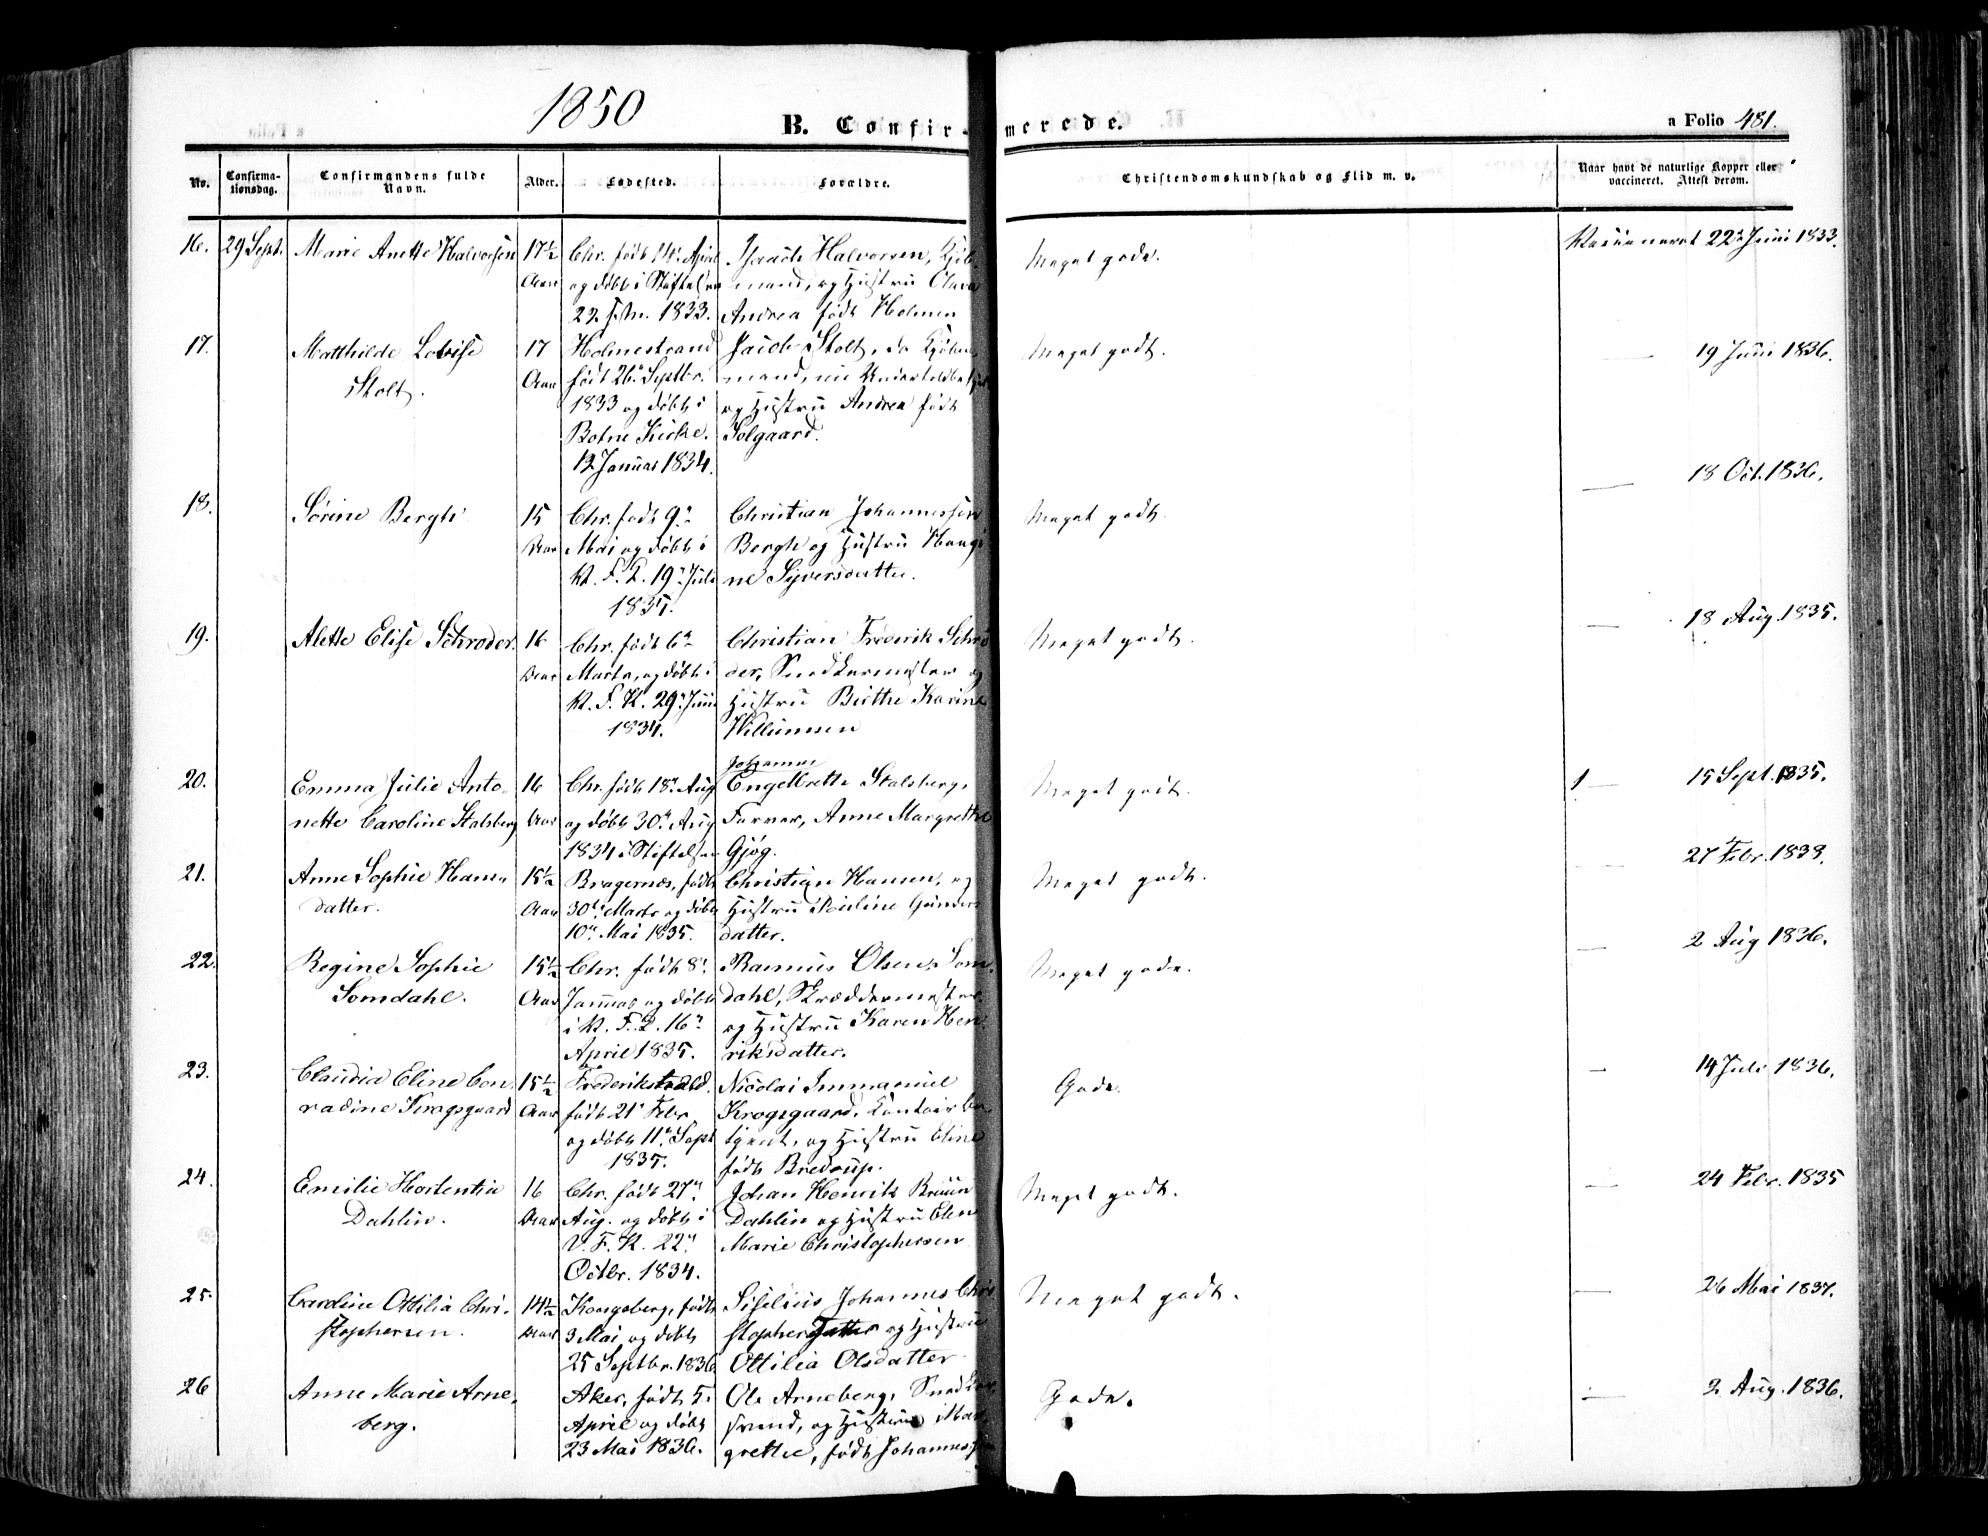 1850
B. Confir-merede.
a Folio 481.
No. Confirma-tionsdag. Confirmandens fulde Navn. Alder. Fødested. Forældre. Christendomskundskab og Flid m. v. Naar havt de naturlige Kopper eller vaccineret. Attest derom.
16. 29 Sept. Marie Anette Halvorsen 17½ Chr. født 14. April Halvorsen, Meget godt. Vaccineret 22 Juni 1833.
Aar og døbt i Stiftelsen mand, og Hustru
22. 1833. Andrea født Holmen
17. Matthilde Lovise 17 Holmestrand Jacob Stolt, Meget godt. 19 Juni 1836.
Stolt. Aar født 26. Septbr. mand, nu
1833 og døbt i og Hustru Andrea født
Botne Kirke. Solgaard.
12 Januar 1834.
18. Sørine Bergh 15 Chr. født 9. Christian Johannessen Meget godt. 18 Oct. 1836.
Aar Mai og døbt i Bergh og Hustru
V. F. K. 19. Juli ne Syversdatter.
1835.
19. Alette Elise Schrøder. 16 Chr. født 6. Christian Frederik Schrø Meget godt. 18 Aug. 1835.
Aar Marts, og døbt i der, Snedkermester og
V. F. K. 29. Juni Hustru Birthe Karine
1834. Willumsen
Johannes
20. Emma Julie Anto- 16 Chr. født 18. Aug Engelbrette Stalsberg, Meget godt. 15 Sept. 1835.
nette Caroline Stalsberg Aar og døbt 30. Aug Farver, Anne Margrethe
1834 i Stiftelsen Gjøg.
21. Anne Sophie Hans- 15½ Bragernæs, født Christian Hansen, og Meget godt. 27 Febr. 1838.
datter. Aar 30. Marts og døbt Hustru Pauline Gunders
10. Mai 1835. datter.
22. Regine Sophie 15½ Chr. født 8. Rasmus Olsen Som- Meget godt. 2 Aug 1836.
Somdahl. Aar Januar og døbt dahl, Skræddermester
16. og Hustru Karen Hen-
April 1835. riksdatter.
23. Claudia Eline Con- 15½ Frederikstad. Nicolai Immanuel Godt. 14 Juli 1836.
radine Krogsgaard Aar født 21. Febr. Krogsgaard,
og døbt 11. Sept og Hustru Eline
1835. født Bredrup.
24. Emilie Hortentia 16 Chr. født 27. Johan Henrik Bruun Meget godt. 24 Febr. 1835
Dahlin. Aar Aug. og døbt i Dahlin og Hustru Elen
V. F. K. 22. Marie Christophersen
Octbr. 1834.
25. Caroline Ottilia Chri- 14½ Kongsberg, født Johannes Chri Meget godt. 26 Mai 1837.
stophersen. Aar 3 Mai og døbt og Hustru
25 Septbr. 1836 Ottilia Olsdatter
26 Anne Marie Arne- Aker, født 5. Ole Arneberg, Snedker Godt. 2 Aug. 1836.
berg. April og døbt svend, og Hustru Mar
23 Mai 1836. grethe, født Johannessen